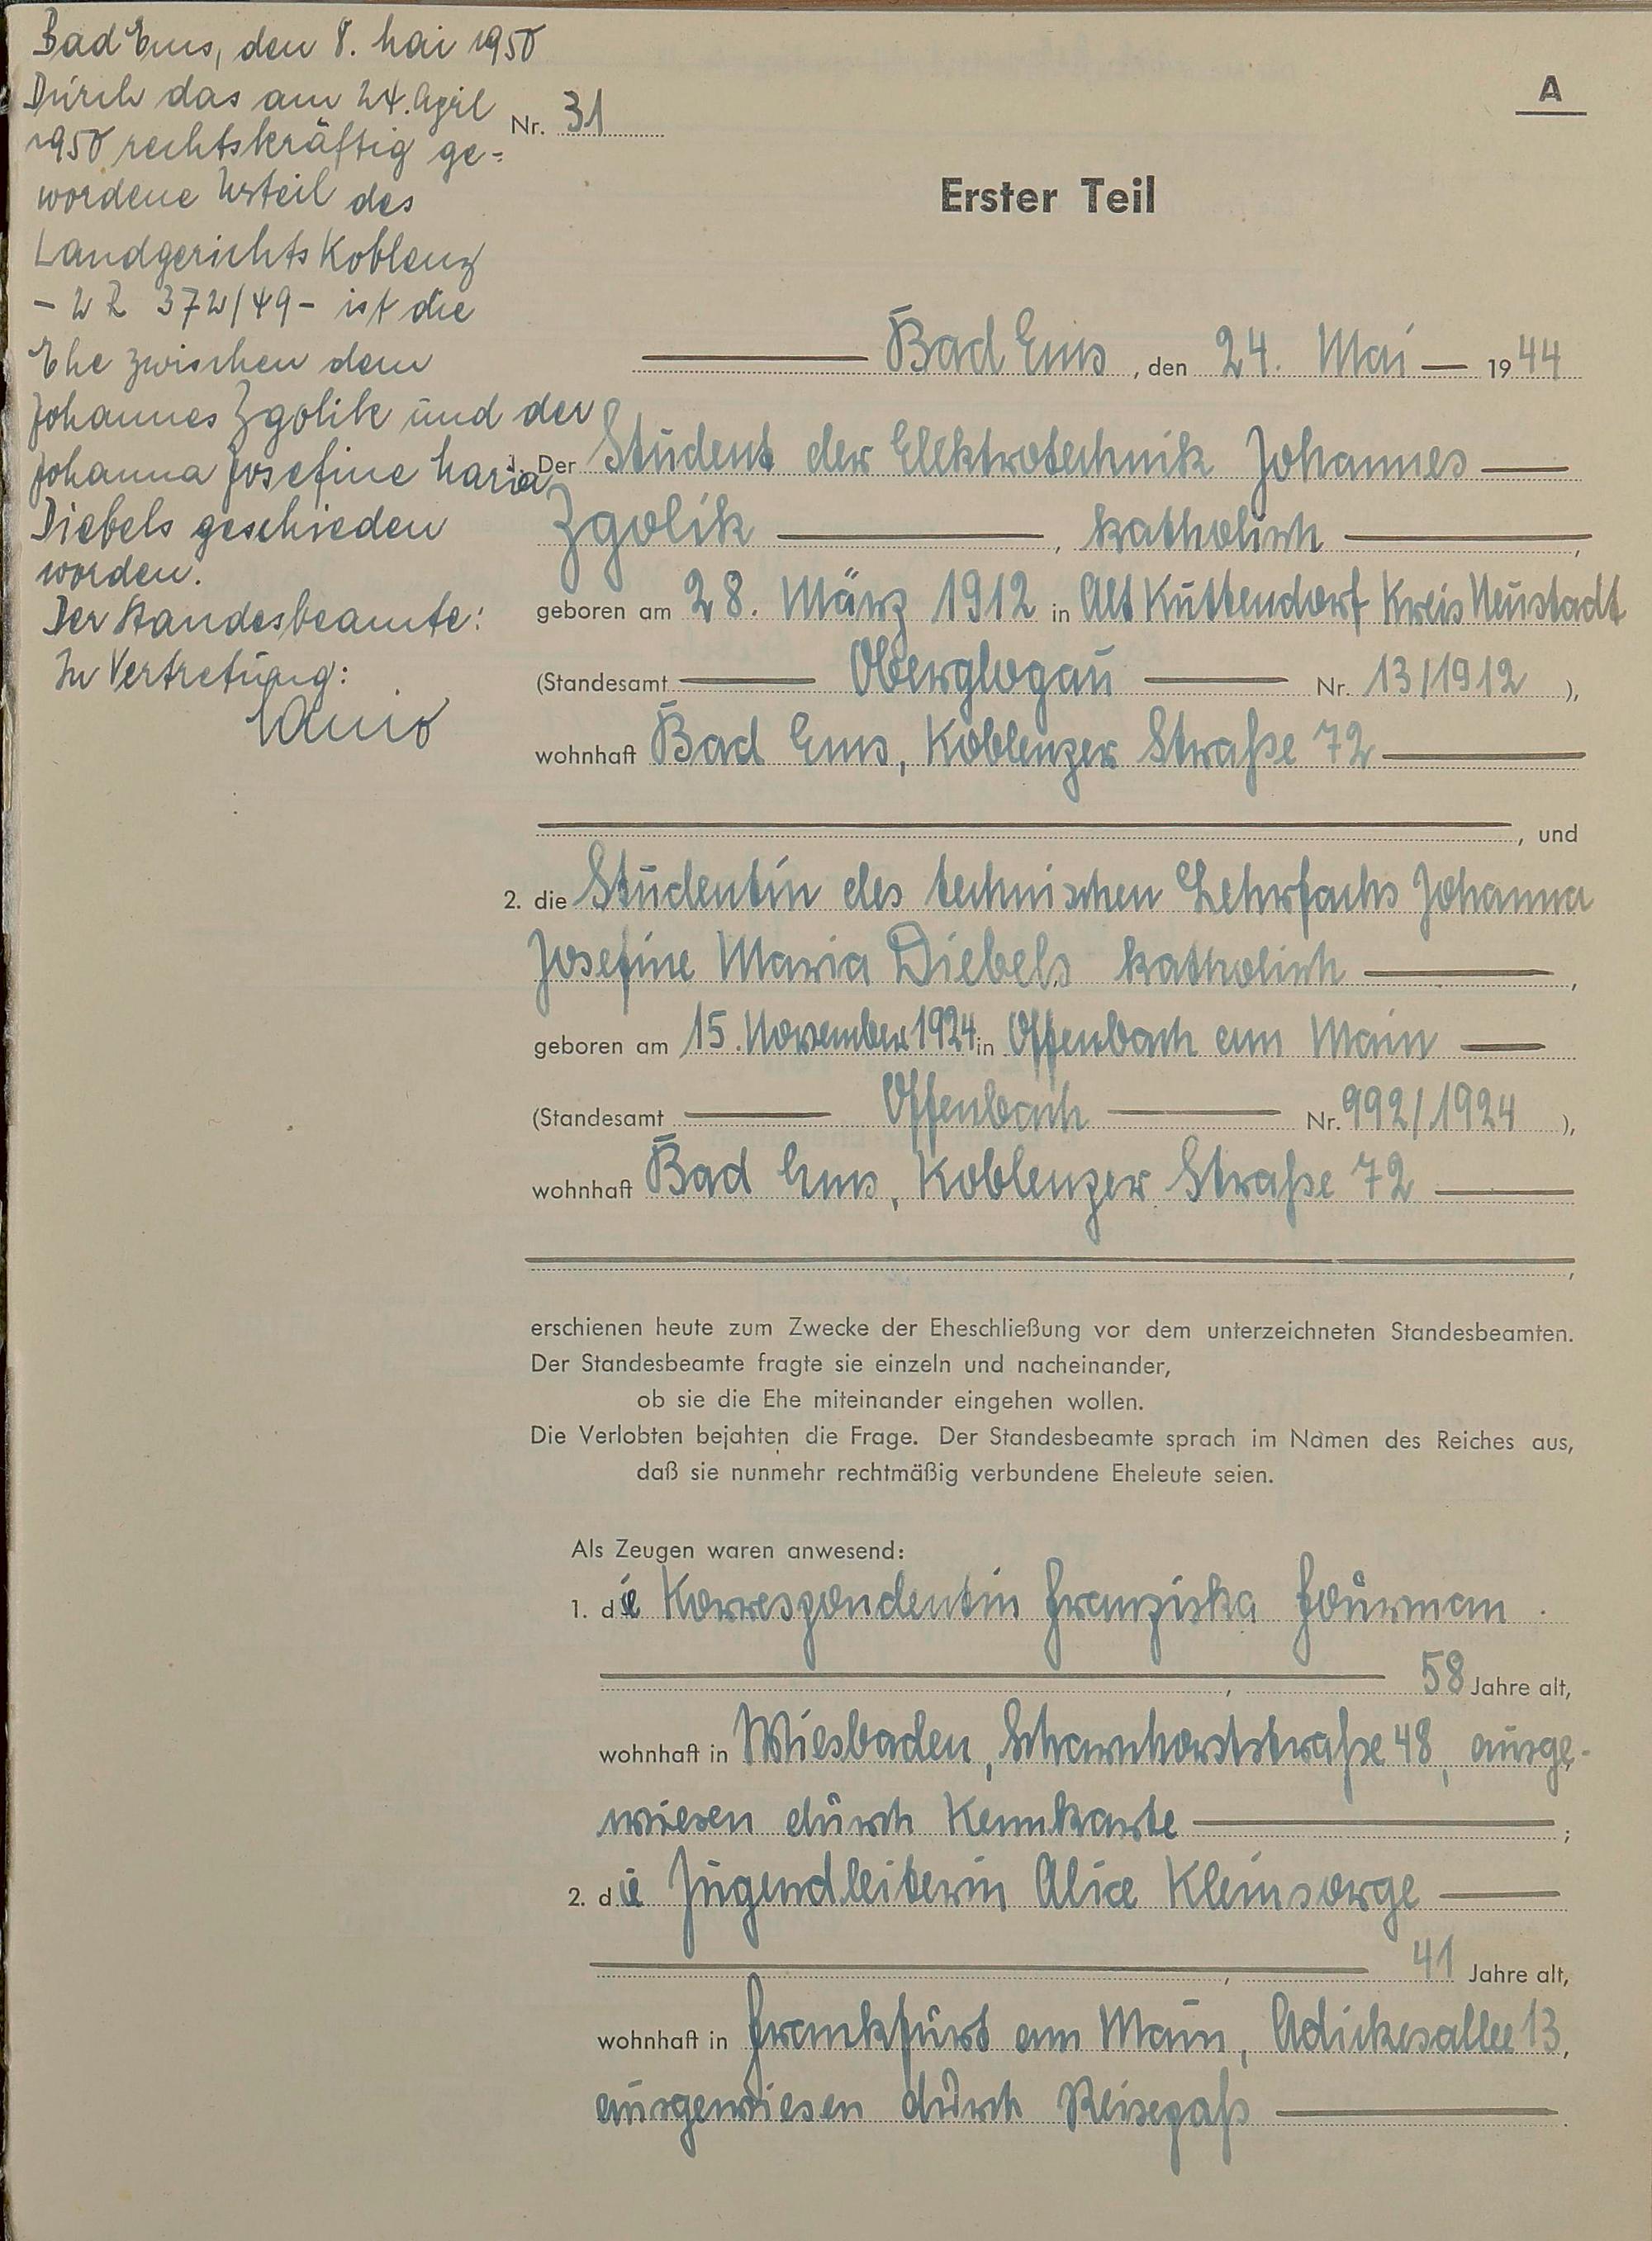 Bad Ems, den 8. Mai 1950
Dürch das am 24. April
1950 rechtskräftig ge=
wordene Urteil des
Landgerichts Koblenz
- 2 R 372/49 - ist die
Ehe zwischen dem
Johannes Zgolik und der
Johanna Josefine Maria
Diebels geschieden
worden.
Der Standesbeamte:
In Vertretüng:
A
Nr. 31
Erster Teil
Bad Ems, den 24. Mai 1944
1. Der Stüdent der Elektrotechnik Johannes
Zgolik, katholisch,
geboren am 28. März 1912 in Alt Küttendorf Kreis Neüstadt
(Standesamt Oberglogaü Nr. 13/1912),
wohnhaft Bad Ems, Koblenzer Straße 72
, und
2. die Stüdentin des technischen Lehrfachs Johanna
Josefine Maria Diebels, katholisch,
geboren am 15. November 1924 in Offenbach am Main
(Standesamt Offenbach Nr. 992/1924),
wohnhaft Bad Ems, Koblenzer Straße 72
,
erschienen heute zum Zwecke der Eheschließung vor dem unterzeichneten Standesbeamten.
Der Standesbeamte fragte sie einzeln und nacheinander,
ob sie die Ehe miteinander eingehen wollen.
Die Verlobten bejahten die Frage. Der Standesbeamte sprach im Namen des Reiches aus,
daß sie nunmehr rechtmäßig verbundene Eheleute seien.
Als Zeugen waren anwesend:
1. die Korrespondentin Franziska Foürman
, 58 Jahre alt,
wohnhaft in Wiesbaden, Scharnhorststraße 48, aüsge-
wiesen dürch Kennkarte ;
2. die Jügendleiterin Alice Kleinsorge
, 41 Jahre alt,
wohnhaft in Frankfürt am Main, Adickesallee 13,
aüsgewiesen dürch Reisepaß .